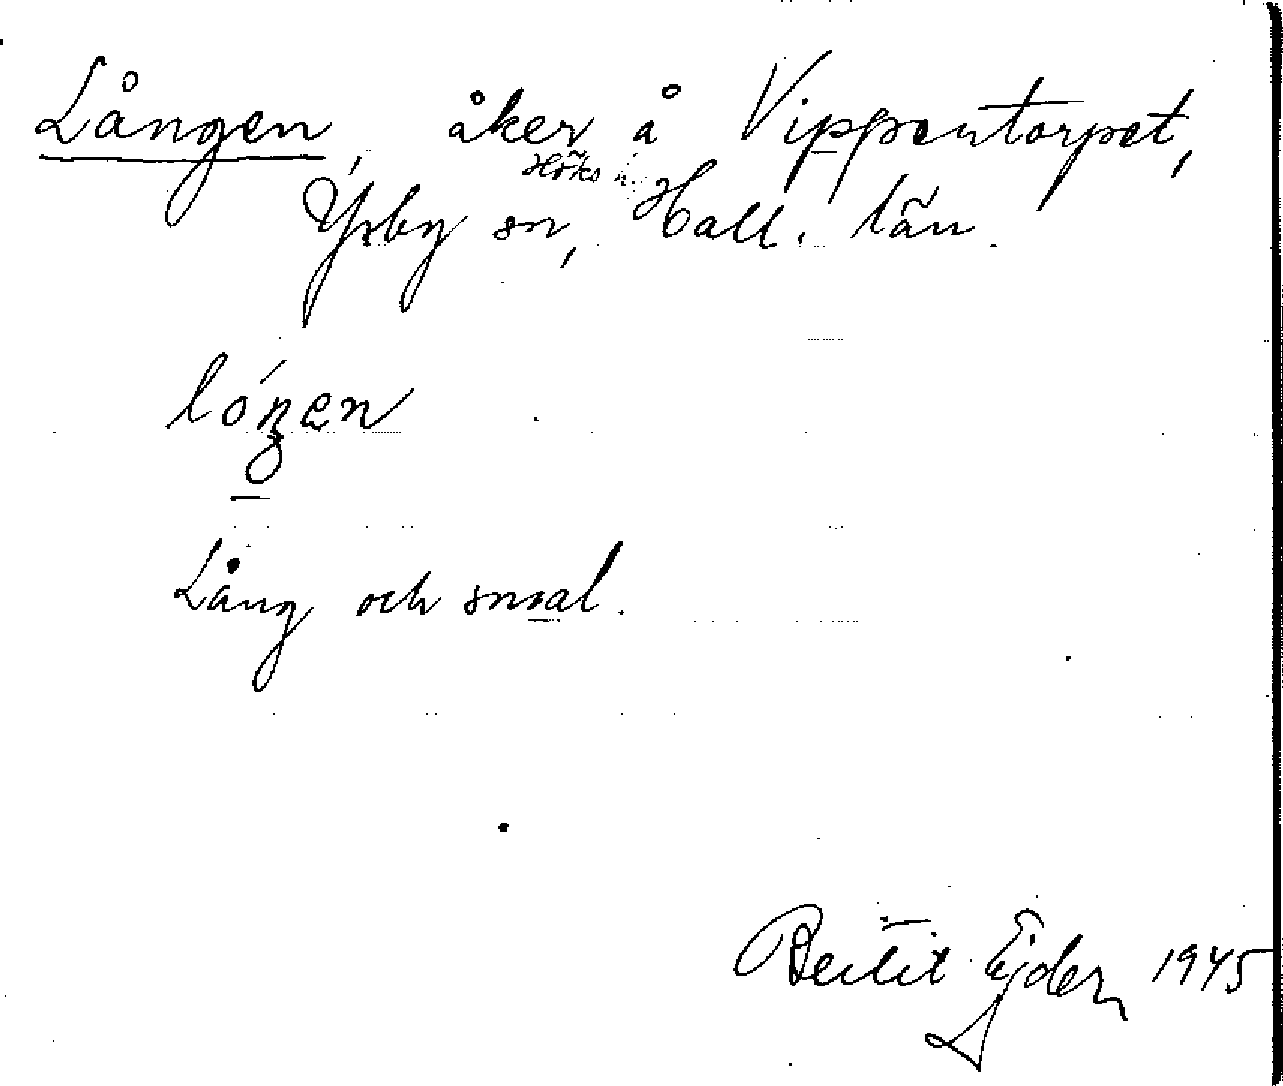 Lången, åker å Vippentorpet,
Höks h.
Ysby sn, Hall. län.
lóŋen
Lång och smal.
Bertil Ejder 1945